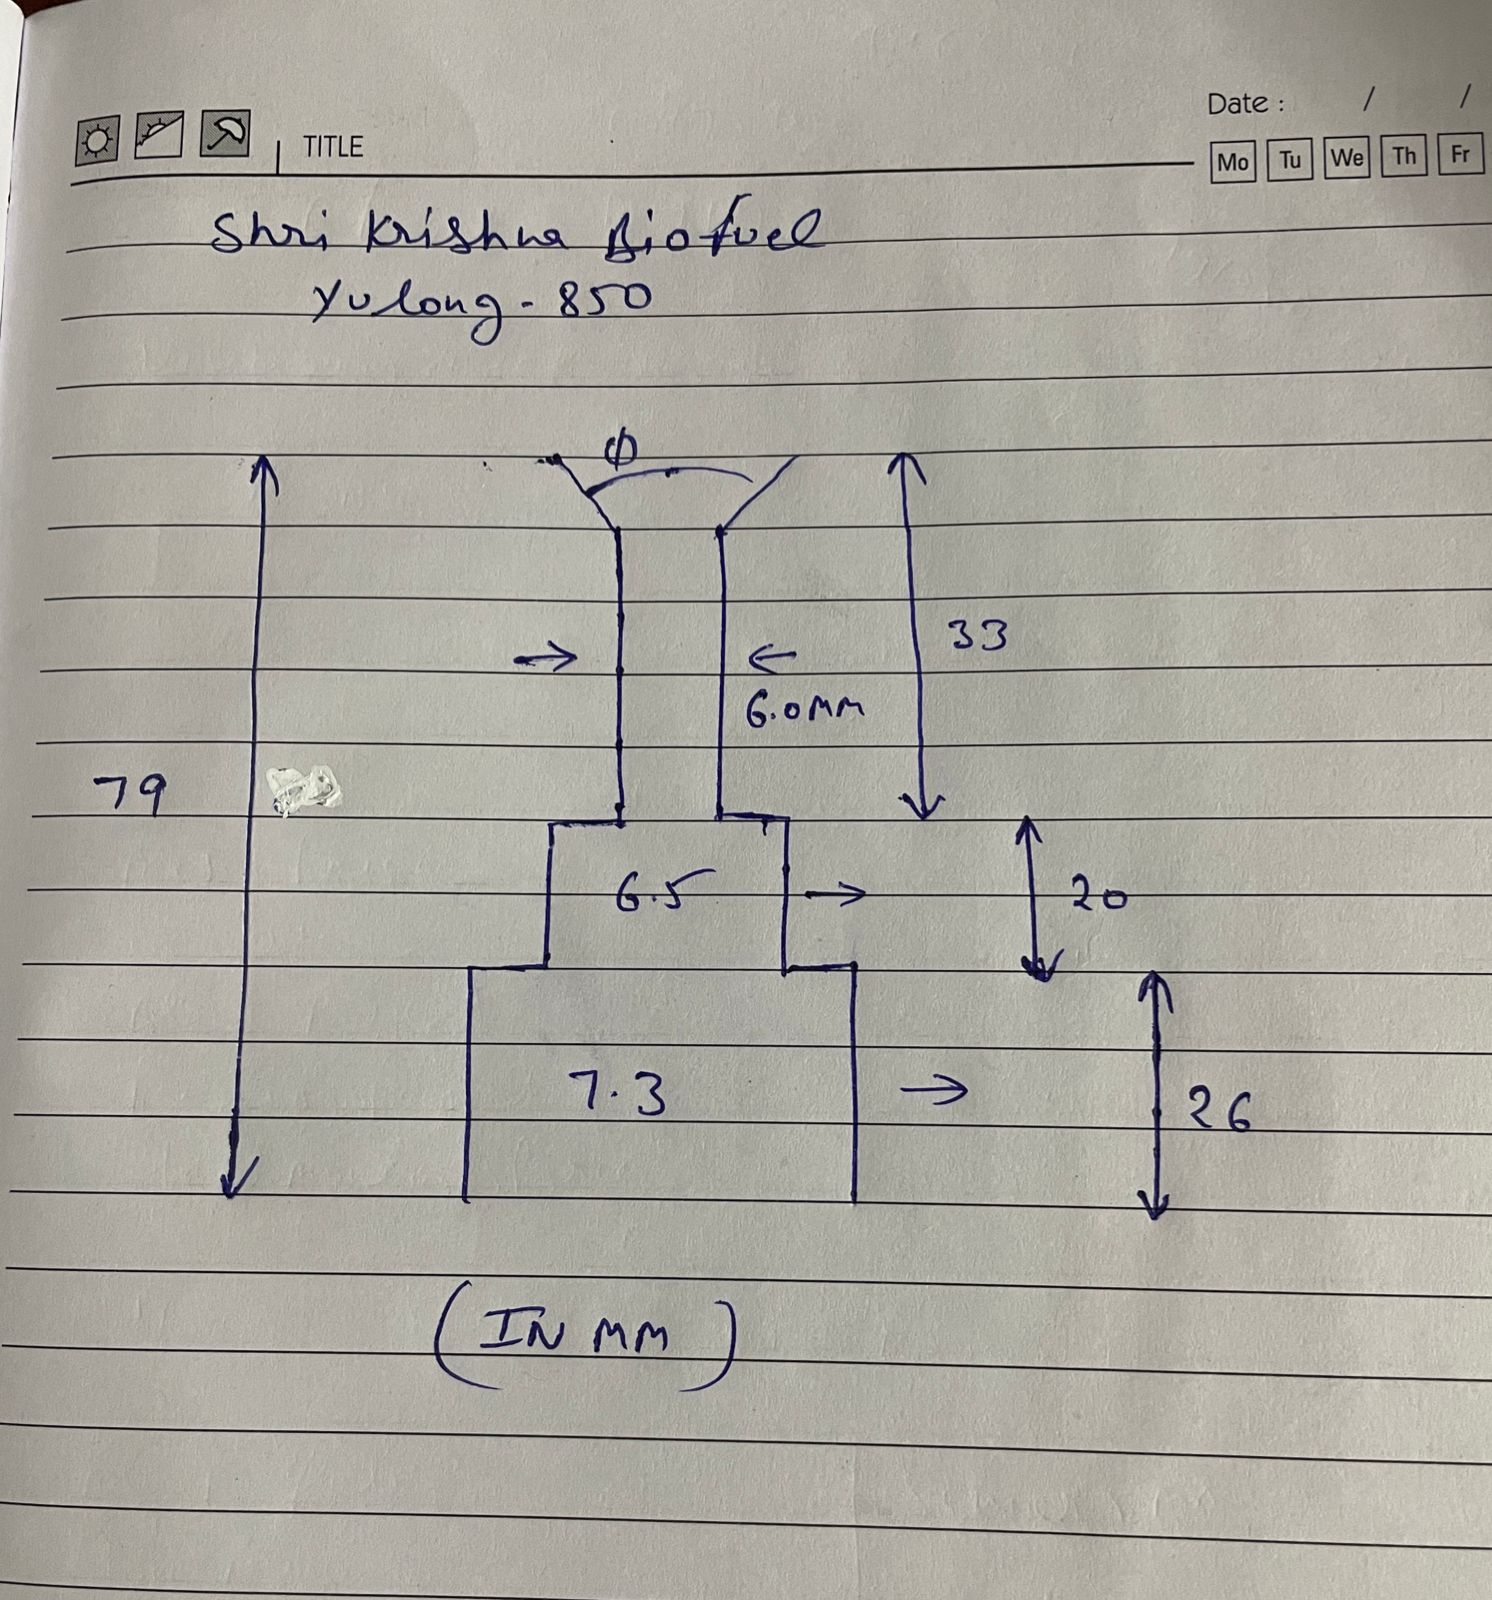 Date : / /
TITLE
Mo Tu We Th Fr
Shri Krishna Biofuel
Yulong - 850
Φ
33
6.0MM
79
6.5
20
7.3
26
(IN MM)